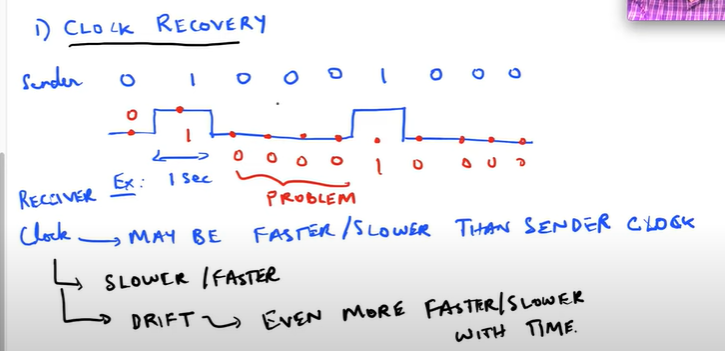 1) CLOCK RECOVERY
Sender 0 1 0 0 0 1 0 0 0
0
1 0 0 0 0 1 0 0 0 0
Ex: 1 sec
PROBLEM
RECEIVER
Clock → MAY BE FASTER/SLOWER THAN SENDER CLOCK
↳ SLOWER/FASTER
↳ DRIFT → EVEN MORE FASTER/SLOWER
WITH TIME.